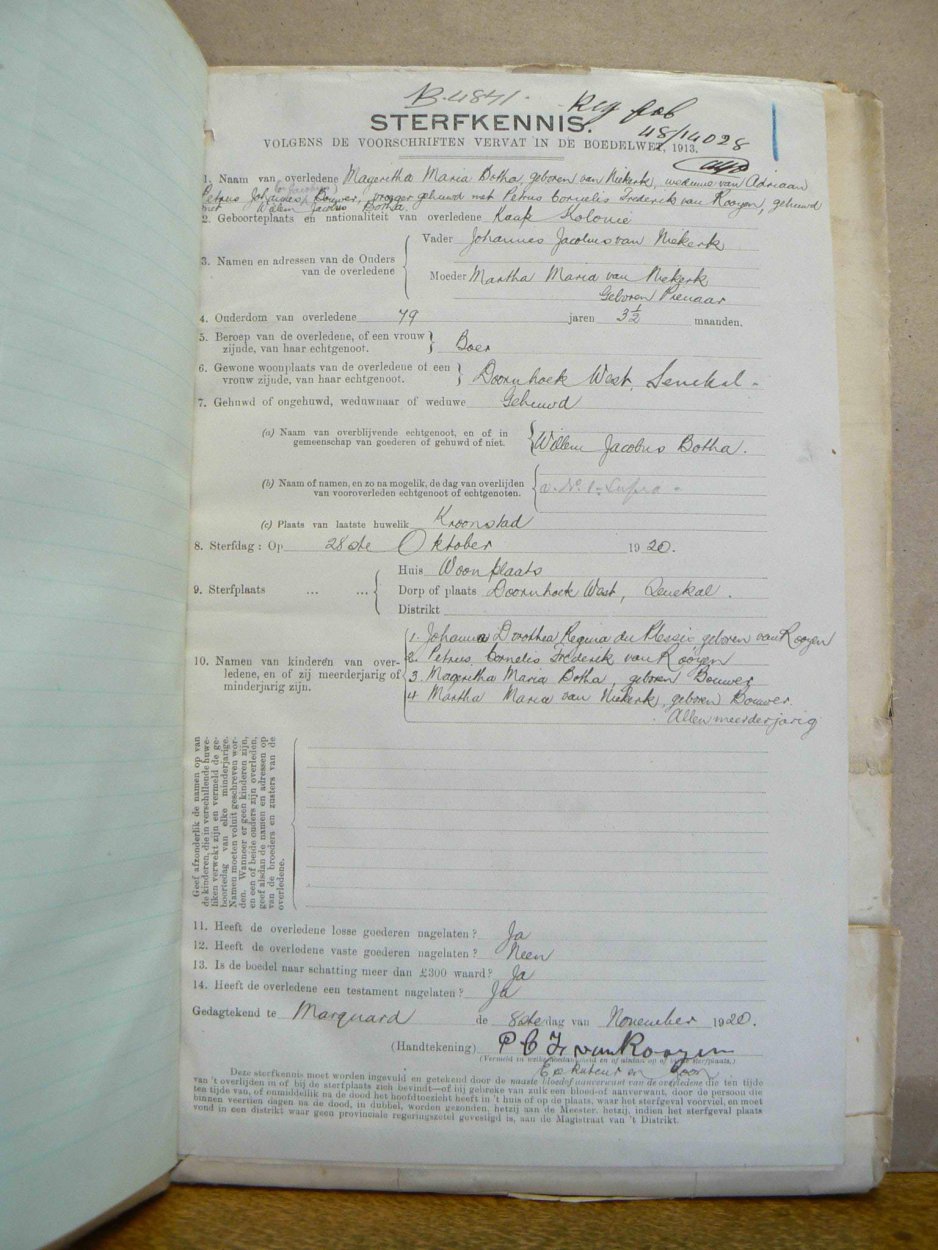 B.4841.
Reg job
STERFKENNIS.
48/14028
VOLGENS DE VOORSCHRIFTEN VERVAT IN DE BOEDELWET, 1913.
1. Naam van overledene Magretha Maria Botha, geboren van Niekerk, weduwe van Adriaan
Petrus Johannes Bouwer, vroeger gehuwd met Petrus Cornelis Frederik van Rooyen, gehuwd
met Willem Jacobus Botha
2. Geboorteplaats en nationaliteit van overledene Kaap Kolonie
3. Namen en adressen van de Ouders van de overledene
Vader Johannes Jacobus van Niekerk
Moeder Martha Maria van Niekerk
Geboren Pienaar
4. Ouderdom van overledene 79 jaren 3½ maanden.
5. Beroep van de overledene, of een vrouw
zijnde, van haar echtgenoot. Boer
6. Gewone woonplaats van de overledene of een
vrouw zijnde, van haar echtgenoot. Doornhoek West, Senekal -
7. Gehuwd of ongehuwd, weduwnaar of weduwe Gehuwd
(a) Naam van overblijvende echtgenoot, en of in
gemeenschap van goederen of gehuwd of niet. Willem Jacobus Botha.
(b) Naam of namen, en zo na mogelik, de dag van overlijden
van vooroverleden echtgenoot of echtgenoten. v. No. 1. Supra -
(c) Plaats van laatste huwelik Kroonstad
8. Sterfdag: Op 28ste Oktober 1920.
9. Sterfplaats ... ...
Huis Woonplaats
Dorp of plaats Doornhoek West, Senekal.
Distrikt
10. Namen van kinderen van over-
ledene, en of zij meerderjarig of
minderjarig zijn.
1. Johanna Dorothea Regina du Plessis geboren van Rooyen
2. Petrus Cornelis Frederik van Rooyen
3. Magretha Maria Botha, geboren Bouwer
4. Martha Maria van Niekerk, geboren Bouwer.
Allen meerderjarig
Geef afzonderlik de namen op van
de kinderen, die in verschillende huwe-
liken verwekt zijn en vermeld de ge-
boortedag van elke minderjarige.
Namen moeten voluit geschreven wor-
den. Wanneer er geen kinderen zijn,
en een of beide ouders zijn overleden,
geef alsdan de namen en adressen op
van de broeders en zusters van de
overledene.
11. Heeft de overledene losse goederen nagelaten? Ja
12. Heeft de overledene vaste goederen nagelaten? Neen
13. Is de boedel naar schatting meer dan £300 waard? Ja
14. Heeft de overledene een testament nagelaten? Ja
Gedagtekend te Marquard de 8ste dag van November 1920.
(Handtekening) P C F van Rooyen
(Vermeld in welke hoedanigheid en of alsdan op of bij de sterfplaats.)
Eksekuteur en Zoon
Deze sterfkennis moet worden ingevuld en getekend door de naaste bloed of aanverwant van de overledene die ten tijde
van 't overlijden in of bij de sterfplaats zich bevindt—of bij gebreke van zulk een bloed-of aanverwant, door de persoon die
ten tijde van, of onmiddellik na de dood het hoofdtoezicht heeft in 't huis of op de plaats, waar het sterfgeval voorviel, en moet
binnen veertien dagen na de dood, in dubbel, worden gezonden, hetzij aan de Meester, hetzij, indien het sterfgeval plaats
vond in een distrikt waar geen provinciale regeringszetel gevestigd is, aan de Magistraat van 't Distrikt.